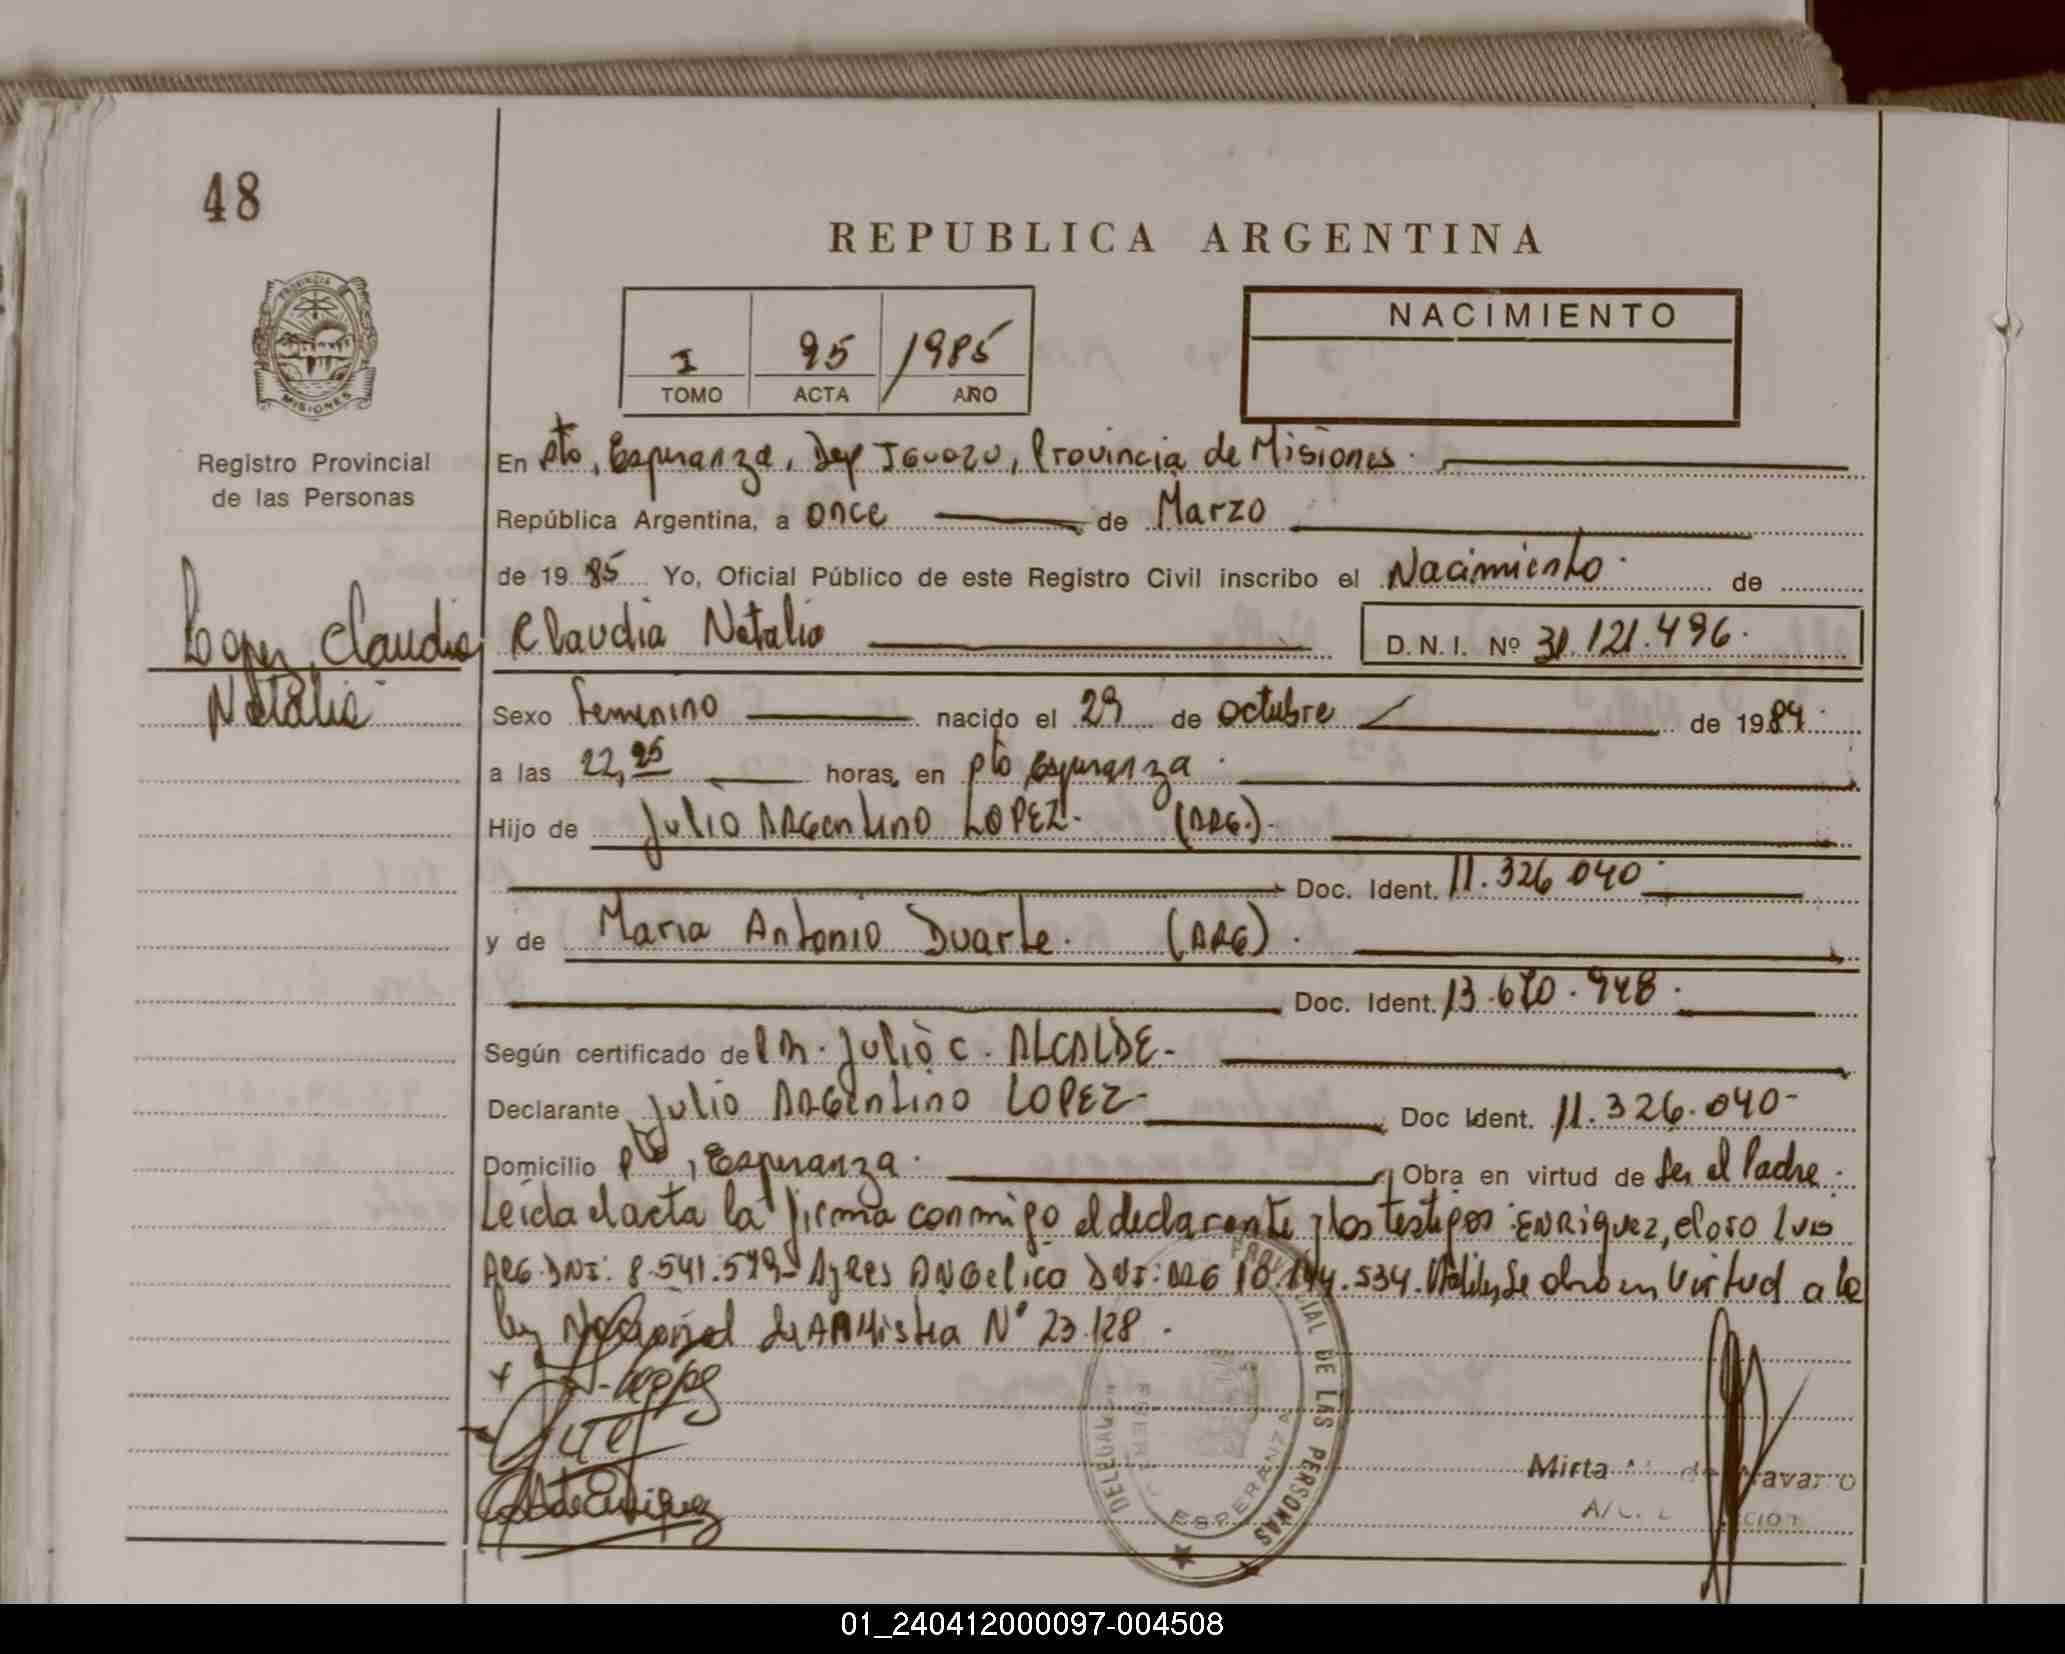 48
REPUBLICA ARGENTINA
NACIMIENTO
I 95 /1985
TOMO ACTA AÑO
PROVINCIA DE
MISIONES
Registro Provincial
de las Personas
En Pto, Esperanza, Dep IGUAZU, Provincia de Misiones.
República Argentina, a once de Marzo
de 19 85 Yo, Oficial Público de este Registro Civil inscribo el Nacimiento. de
Lopez, Claudia
Natalia
Claudia Natalia D.N.I. Nº 31.121.496.
Sexo Femenino nacido el 29 de octubre de 1984.
a las 22,25 horas, en pto Esperanza.
Hijo de Julio ARGentino LOPEZ. (ARG.).
Doc. Ident. 11.326.040.
y de Maria Antonia Duarte. (ARG).
Doc. Ident. 13.670.948.
Según certificado de Julio C. ALCALDE.
Declarante Julio ARGentino LOPEZ. Doc Ident. 11.326.040-
Domicilio Pto, Esperanza. Obra en virtud de Ser el Padre.
Leída el acta la firma conmigo el declarante y los testigos: ENRiquez, Luis
ARG. DNI: 8.541.579- Ayres ANGelico DNI: ARG 10.144.534. Se obro en virtud a la
ley Nacional de AMNistia Nº 23.128.
Lopez
Enriquez
DELEGACION
PROVINCIAL DE LAS PERSONAS
ESPERANZA
Mirta de Navarro
01_240412000097-004508